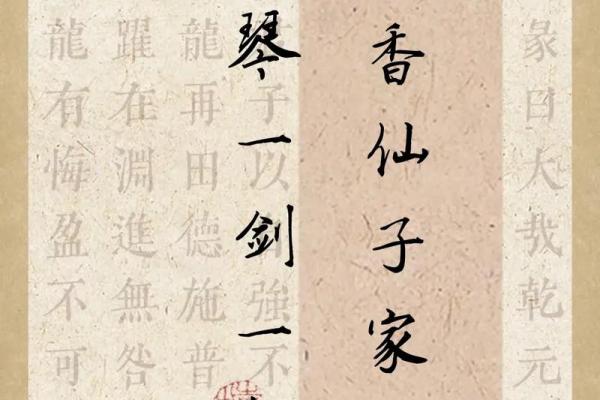 彖曰大哉乾元
香仙子家
琴一剑一
子以強不
龍再田德施普
躍在淵進無咎
龍有悔盈不可